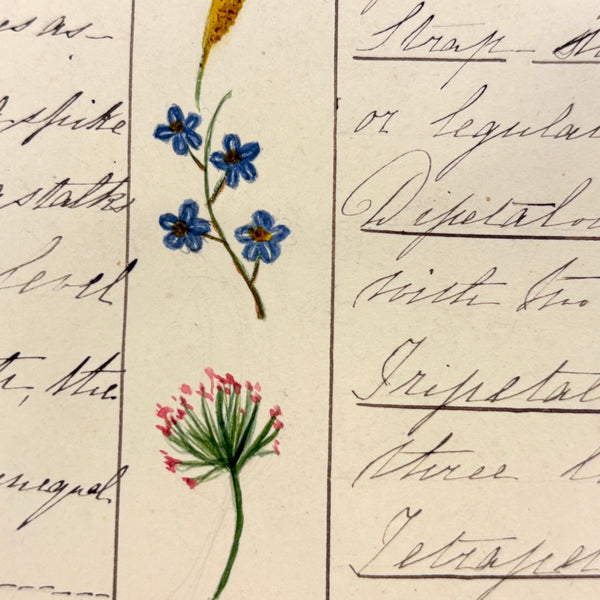 es as-
spike
stalks
level
the
unequal
Strap-
or legula
Dipetalou
with two
Tripetal
three l
Tetrapet